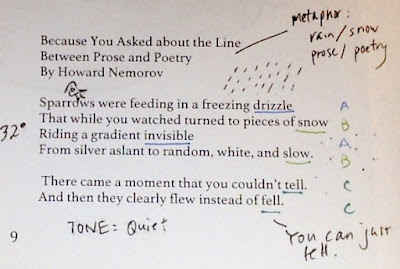 metaphor:
rain/snow
prose/poetry
Because You Asked about the Line
Between Prose and Poetry
By Howard Nemorov
Sparrows were feeding in a freezing drizzle A
That while you watched turned to pieces of snow B
32°
Riding a gradient invisible A
From silver aslant to random, white, and slow. B
There came a moment that you couldn't tell. C
And then they clearly flew instead of fell. C
TONE= Quiet
You can just
tell.
9